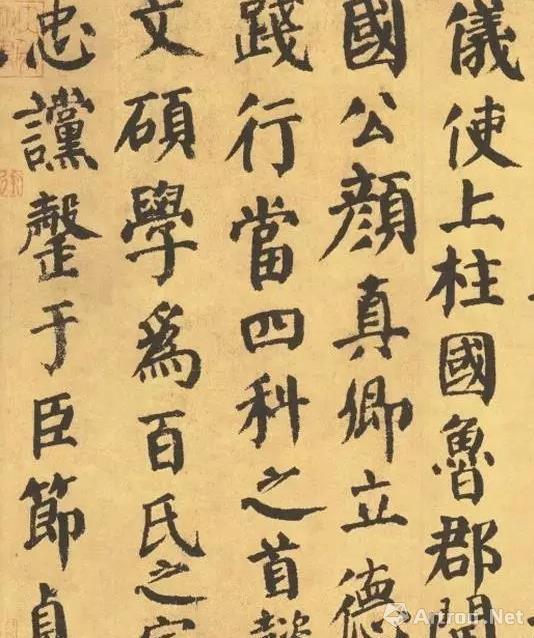 儀使上柱國魯郡
國公顏真卿立德
踐行當四科之首
文碩學爲百氏之
忠讜罄于臣節貞
Artron.Net